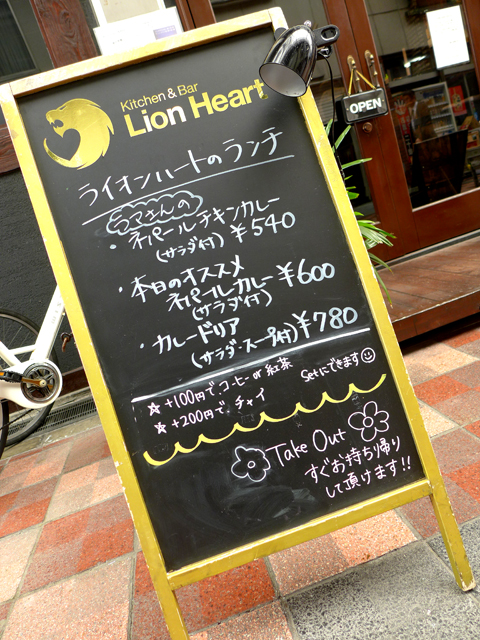 Kitchen & Bar
Lion Heart
OPEN
ライオンハートのランチ
ラマさんの
・ネパールチキンカレー
(サラダ付) ¥540
・本日のオススメ
ネパールカレー ¥600
(サラダ付)
・カレードリア
(サラダ・スープ付) ¥780
☆ +100円で、コーヒーor紅茶
☆ +200円で、チャイ
Setにできます☺
Take Out
すぐお持ち帰り
して頂けます!!